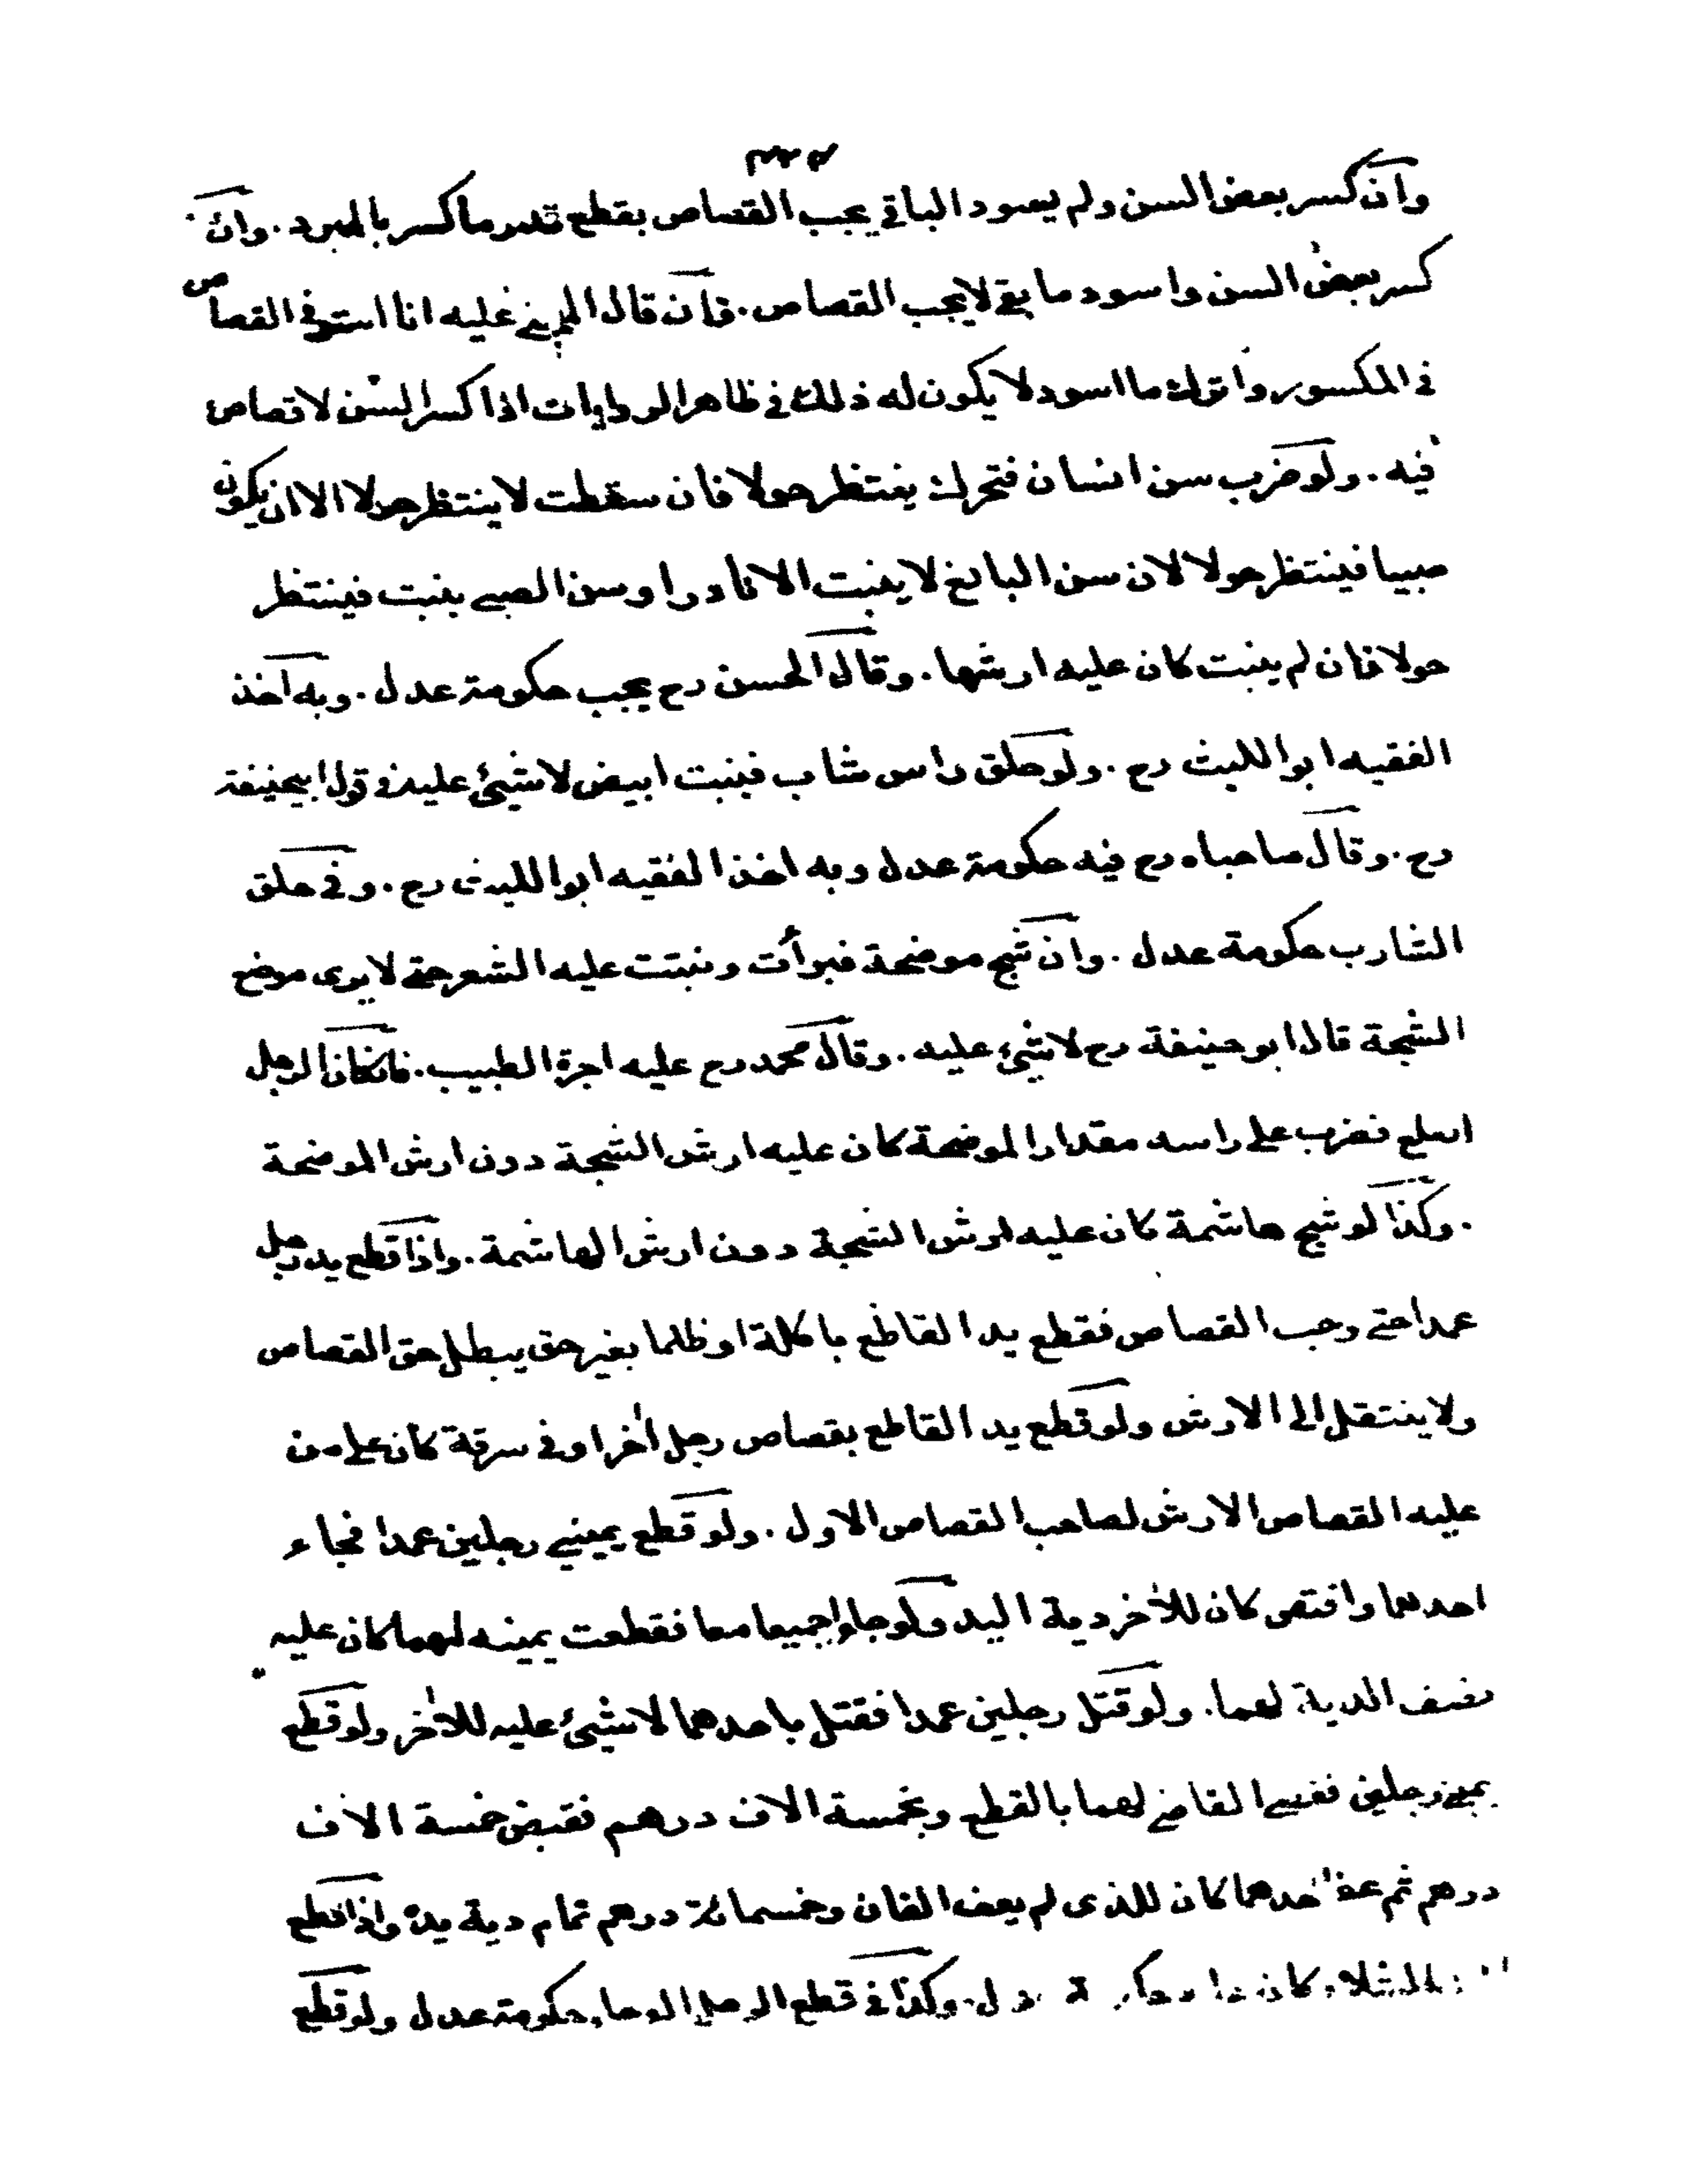 وان كسر بعض السن ولم يسود الباقي يجب القصاص بقطع قدر ما كسر بالمبرد. وان
كسر بعض السن واسود ما بقي لا يجب القصاص. فان قال المجني عليه انا استوفي القصاص
في المكسور واترك ما اسود لا يكون له ذلك في ظاهر الروايات اذا كسر السن لا قصاص
فيه. ولو ضرب سن انسان فتحرك ينتظر حولا فان سقطت لا ينتظر حولا الا ان يكون
صبيا فينتظر حولا لان سن البالغ لا ينبت الا نادرا وسن الصبي ينبت فينتظر
حولا فان لم ينبت كان عليه ارشها. وقال الحسن رح يجب حكومة عدل. وبه اخذ
الفقيه ابوا لليث رح. ولو حلق راس شاب فينبت ابيض لا شيئ عليه في قول ابيحنيفة
رح. وقال صاحباه رح فيه حكومة عدل وبه اخذ الفقيه ابوا لليث رح. وفي حلق
الشارب حكومة عدل. وان شج موضحة فبرأت ونبتت عليه الشعر حتى لا يرى موضع
الشجة قال ابو حنيفة رح لا شيئ عليه. وقال محمد رح عليه اجرة الطبيب. فانكان الرجل
اصلع فضرب على راسه مقدار الموضحة كان عليه ارش الشجة دون ارش الموضحة
. وكذا لو شج هاشمة كان عليه ارش الشجة دون ارش الهاشمة. واذا قطع يد رجل
عمدا حتى وجب القصاص فقطع يد القاطع باكلة او ظلما بغير حق يبطل حق القصاص
ولا ينتقل الى الارش ولو قطع يد القاطع بقصاص رجل اٰخر او في سرقة كان على من
عليه القصاص الارش لصاحب القصاص الاول. ولو قطع يميني رجلين عمدا فجاء
احدهما واقتص كان للاٰخر دية اليد ولو جاؤا جميعا معا فقطعت يمينه لهما كان عليه
نصف الدية لهما. ولو قتل رجلين عمدا فقتل باحدهما لا شيئ عليه للاٰخر ولو قطع
يميني رجلين فقضى القاضي لهما بالقطع وبخمسة الاف درهم فقبض خمسة الاف
درهم ثم عفا احدهما كان للذى لم يعف الفان وخمسمائة درهم تمام دية يده واذا قطع
الشلاء كان وكذا في قطع الرجل العرجاء حكومة عدل ولو قطع